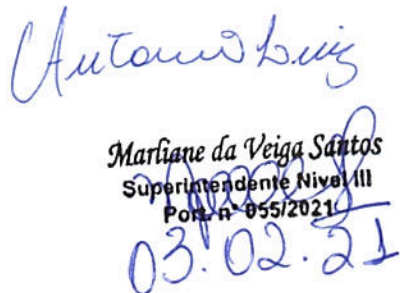 Antonio Luiz
Marliane da Veiga Santos
Superintendente Nivel III
Port. nº 055/2021
03.02.21